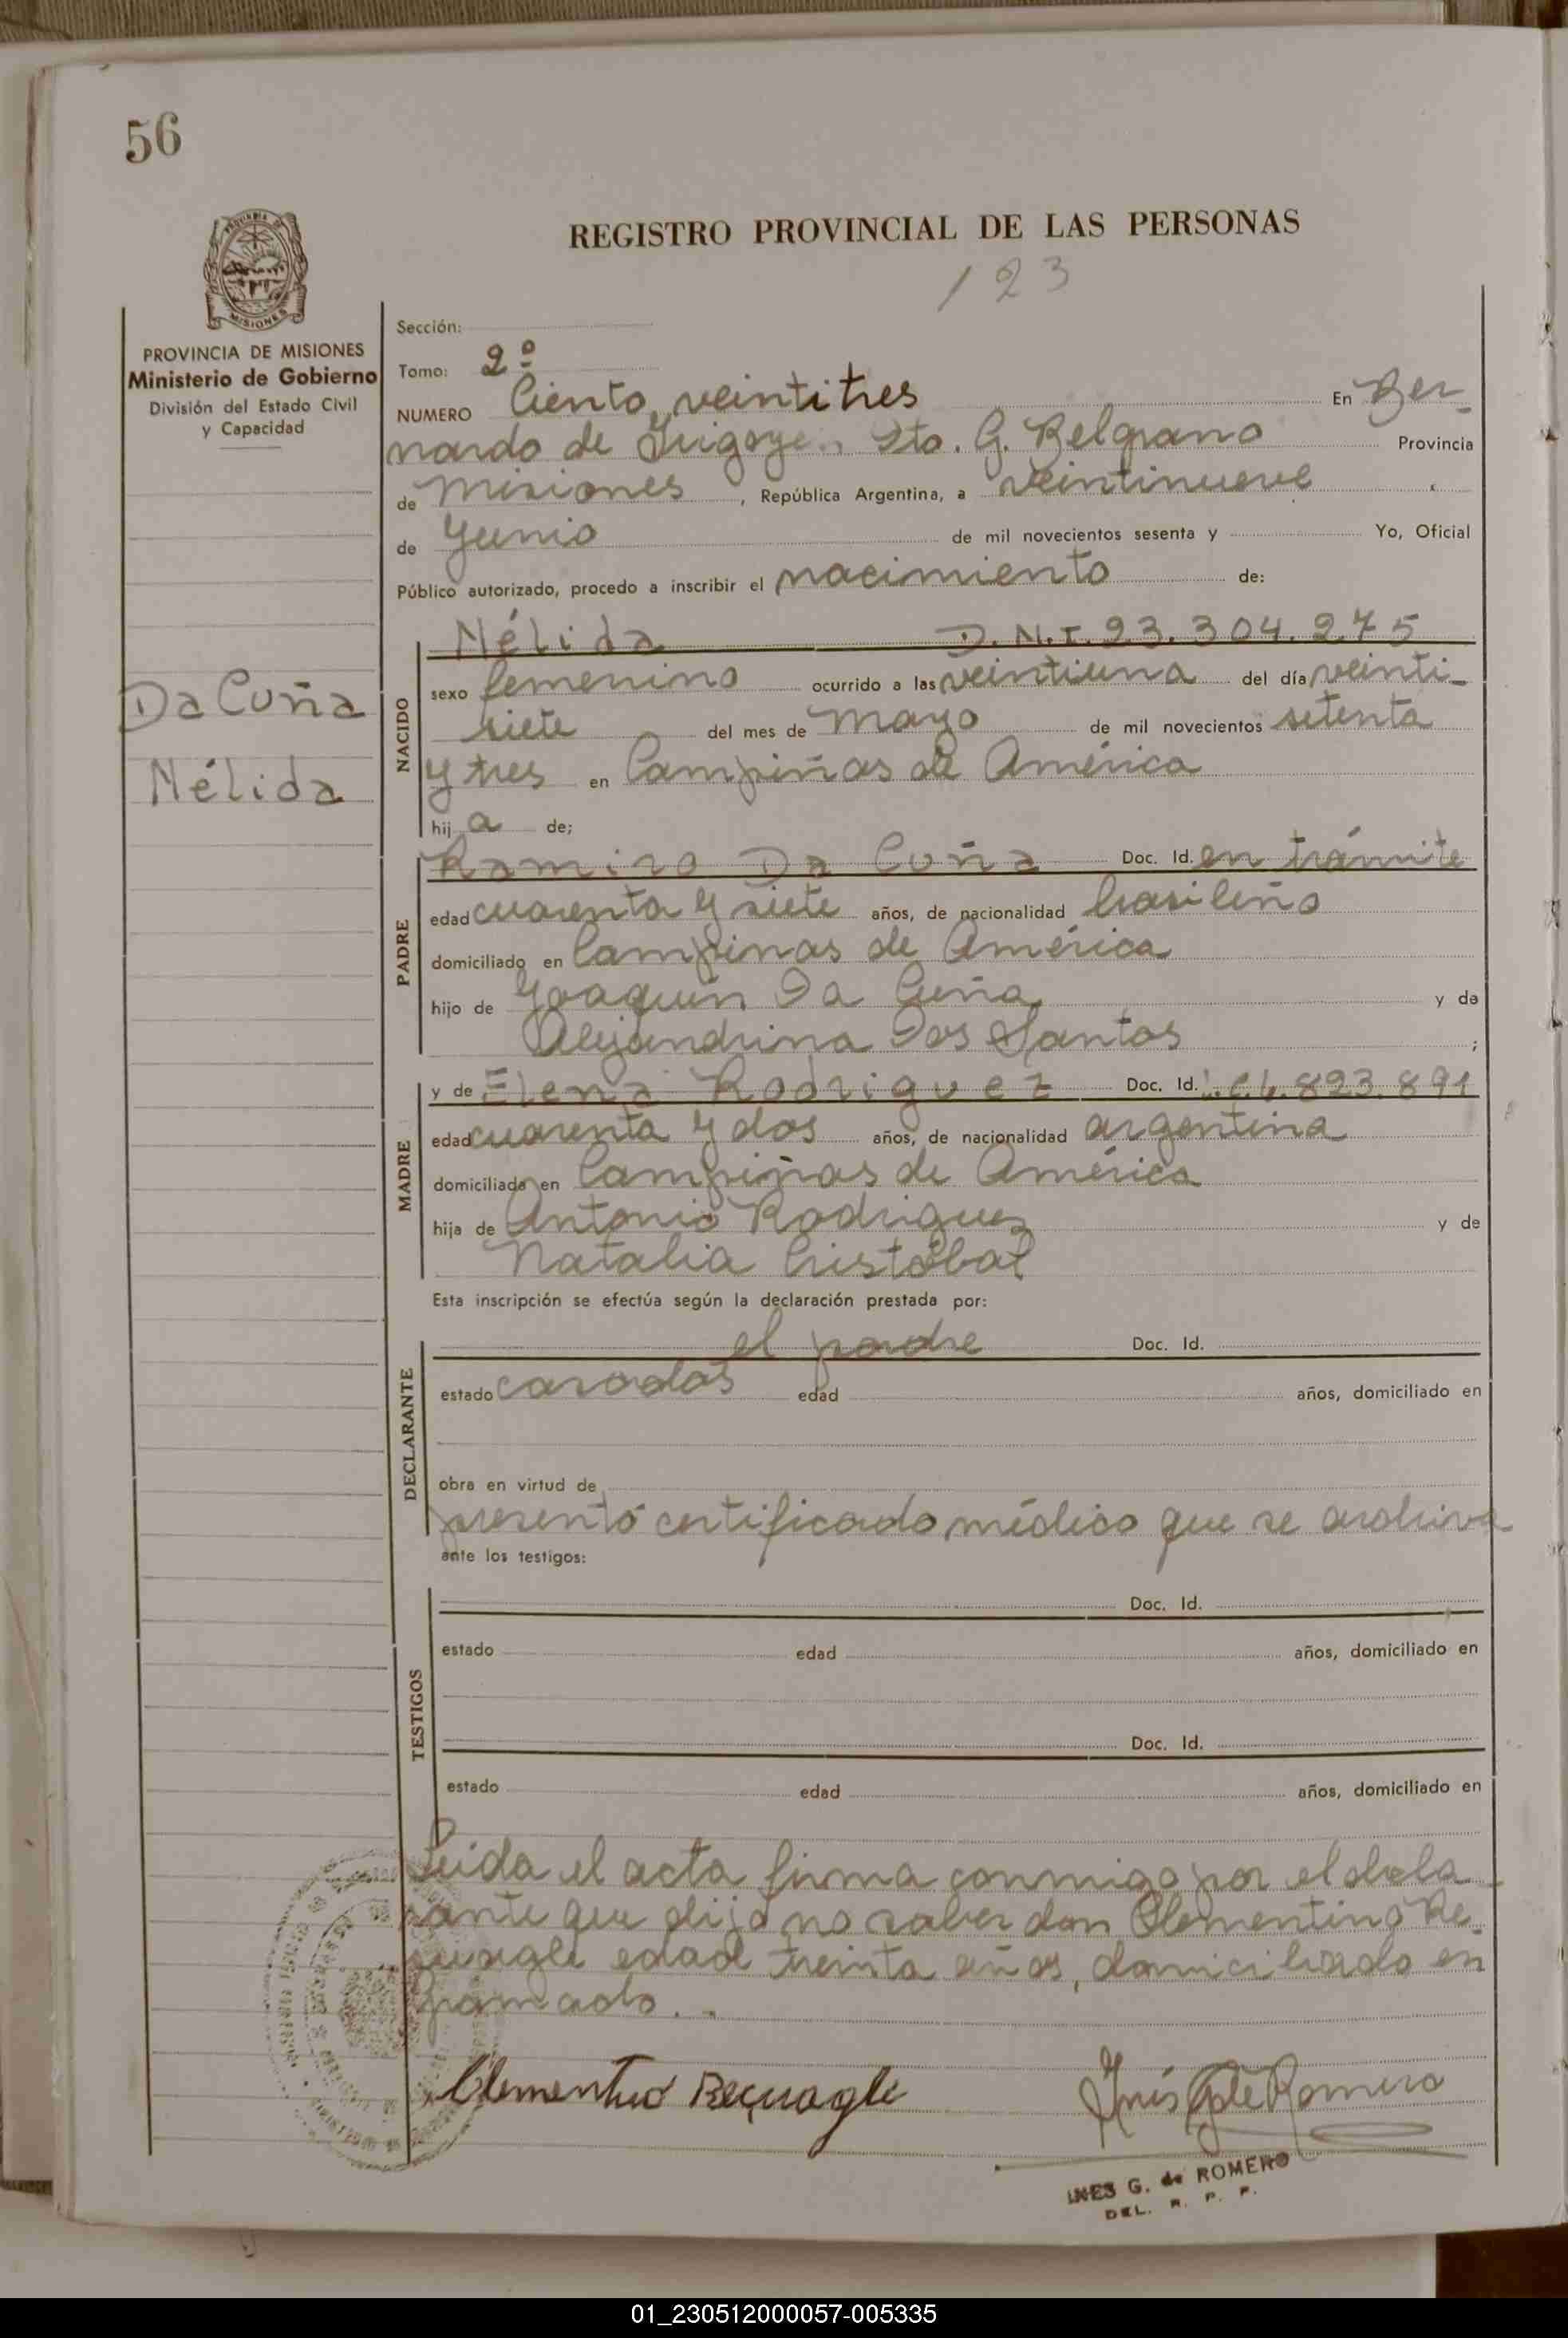 56
REGISTRO PROVINCIAL DE LAS PERSONAS
123
PROVINCIA DE MISIONES
Ministerio de Gobierno
División del Estado Civil
y Capacidad
Sección:
Tomo: 2º
NUMERO Ciento veintitres En Ber-
nardo de Irigoyen, Dto. G. Belgrano Provincia
de Misiones, República Argentina, a veintinueve
de Junio de mil novecientos sesenta y Yo, Oficial
Público autorizado, procedo a inscribir el nacimiento de:
Nélida D.N.I. 93.304.275
Da Cuña
Nélida
NACIDO
sexo femenino ocurrido a las veintiuna del día veinti-
siete del mes de Mayo de mil novecientos setenta
y tres en Campiñas de América
hij a de;
PADRE
Ramiro Da Cuña Doc. Id. en trámite
edad cuarenta y siete años, de nacionalidad brasileño
domiciliado en Campinas de América
hijo de Joaquín Da Cuña y de
Alejandrina Dos Santos ;
MADRE
y de Elena Rodriguez Doc. Id. 823.891
edad cuarenta y dos años, de nacionalidad argentina
domiciliada en Campiñas de América
hija de Antonio Rodriguez y de
Natalia Cristóbal
Esta inscripción se efectúa según la declaración prestada por:
DECLARANTE
el padre Doc. Id.
estado casados edad años, domiciliado en
obra en virtud de
presentó certificado médico que se archiva
ante los testigos:
TESTIGOS
Doc. Id.
estado edad años, domiciliado en
Doc. Id.
estado edad años, domiciliado en
Leida el acta firma conmigo por el decla-
rante que dijo no saber don Clementino
edad treinta años, domiciliado en
INES G. de ROMERO
DEL. R. P. P.
01_230512000057-005335